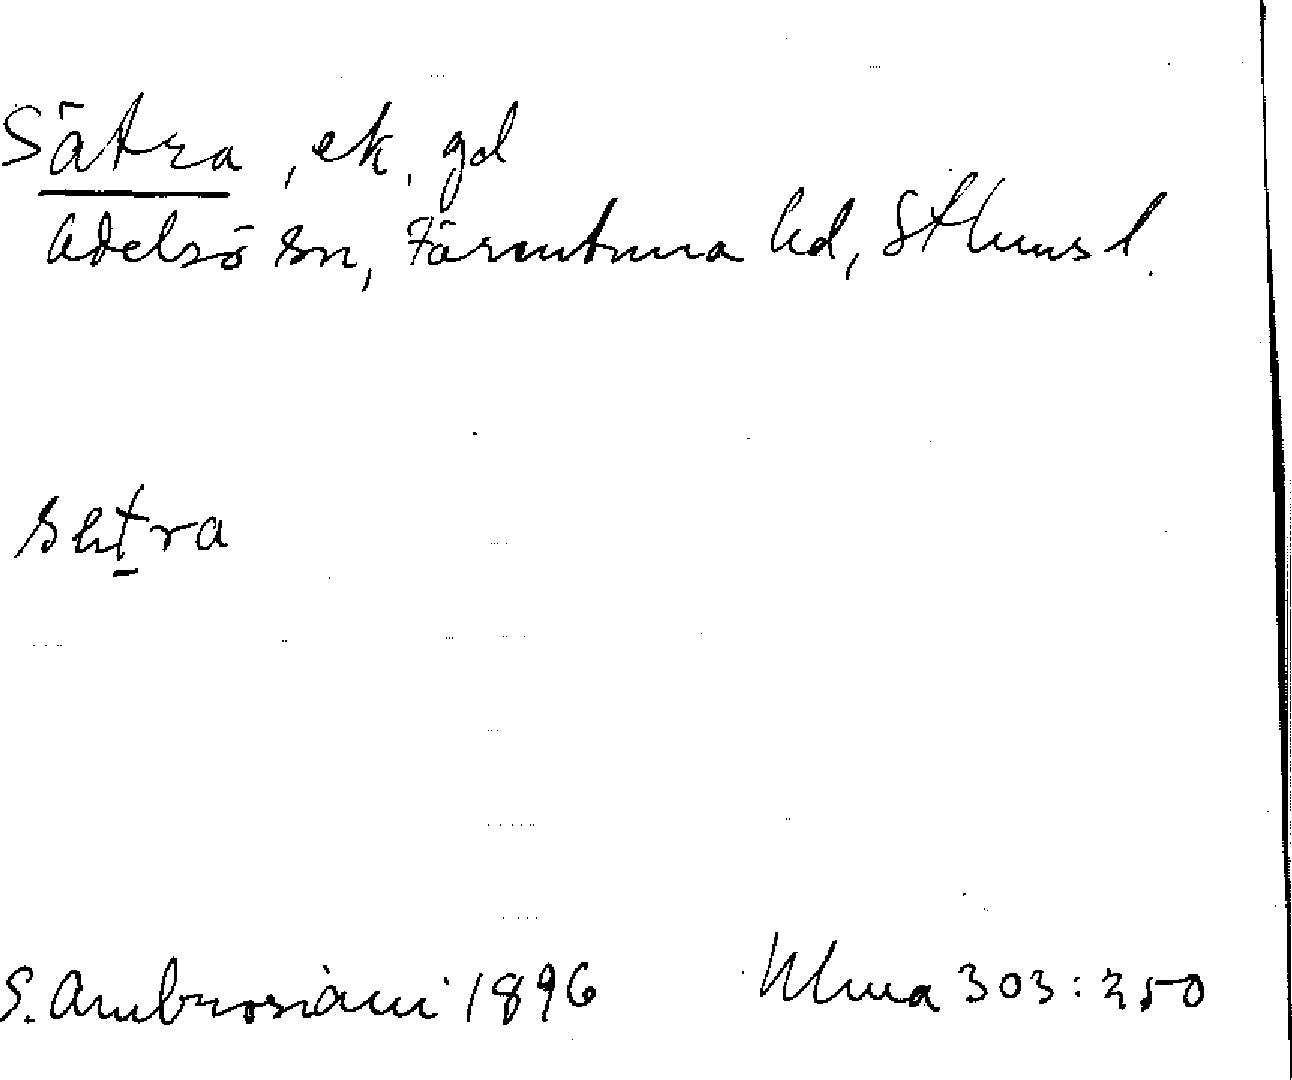 Sätra, ek. gd
Adelsö sn, Färentuna hd, Sthms l.
sätra
S. Ambrosiani 1896 Ulma 303:250